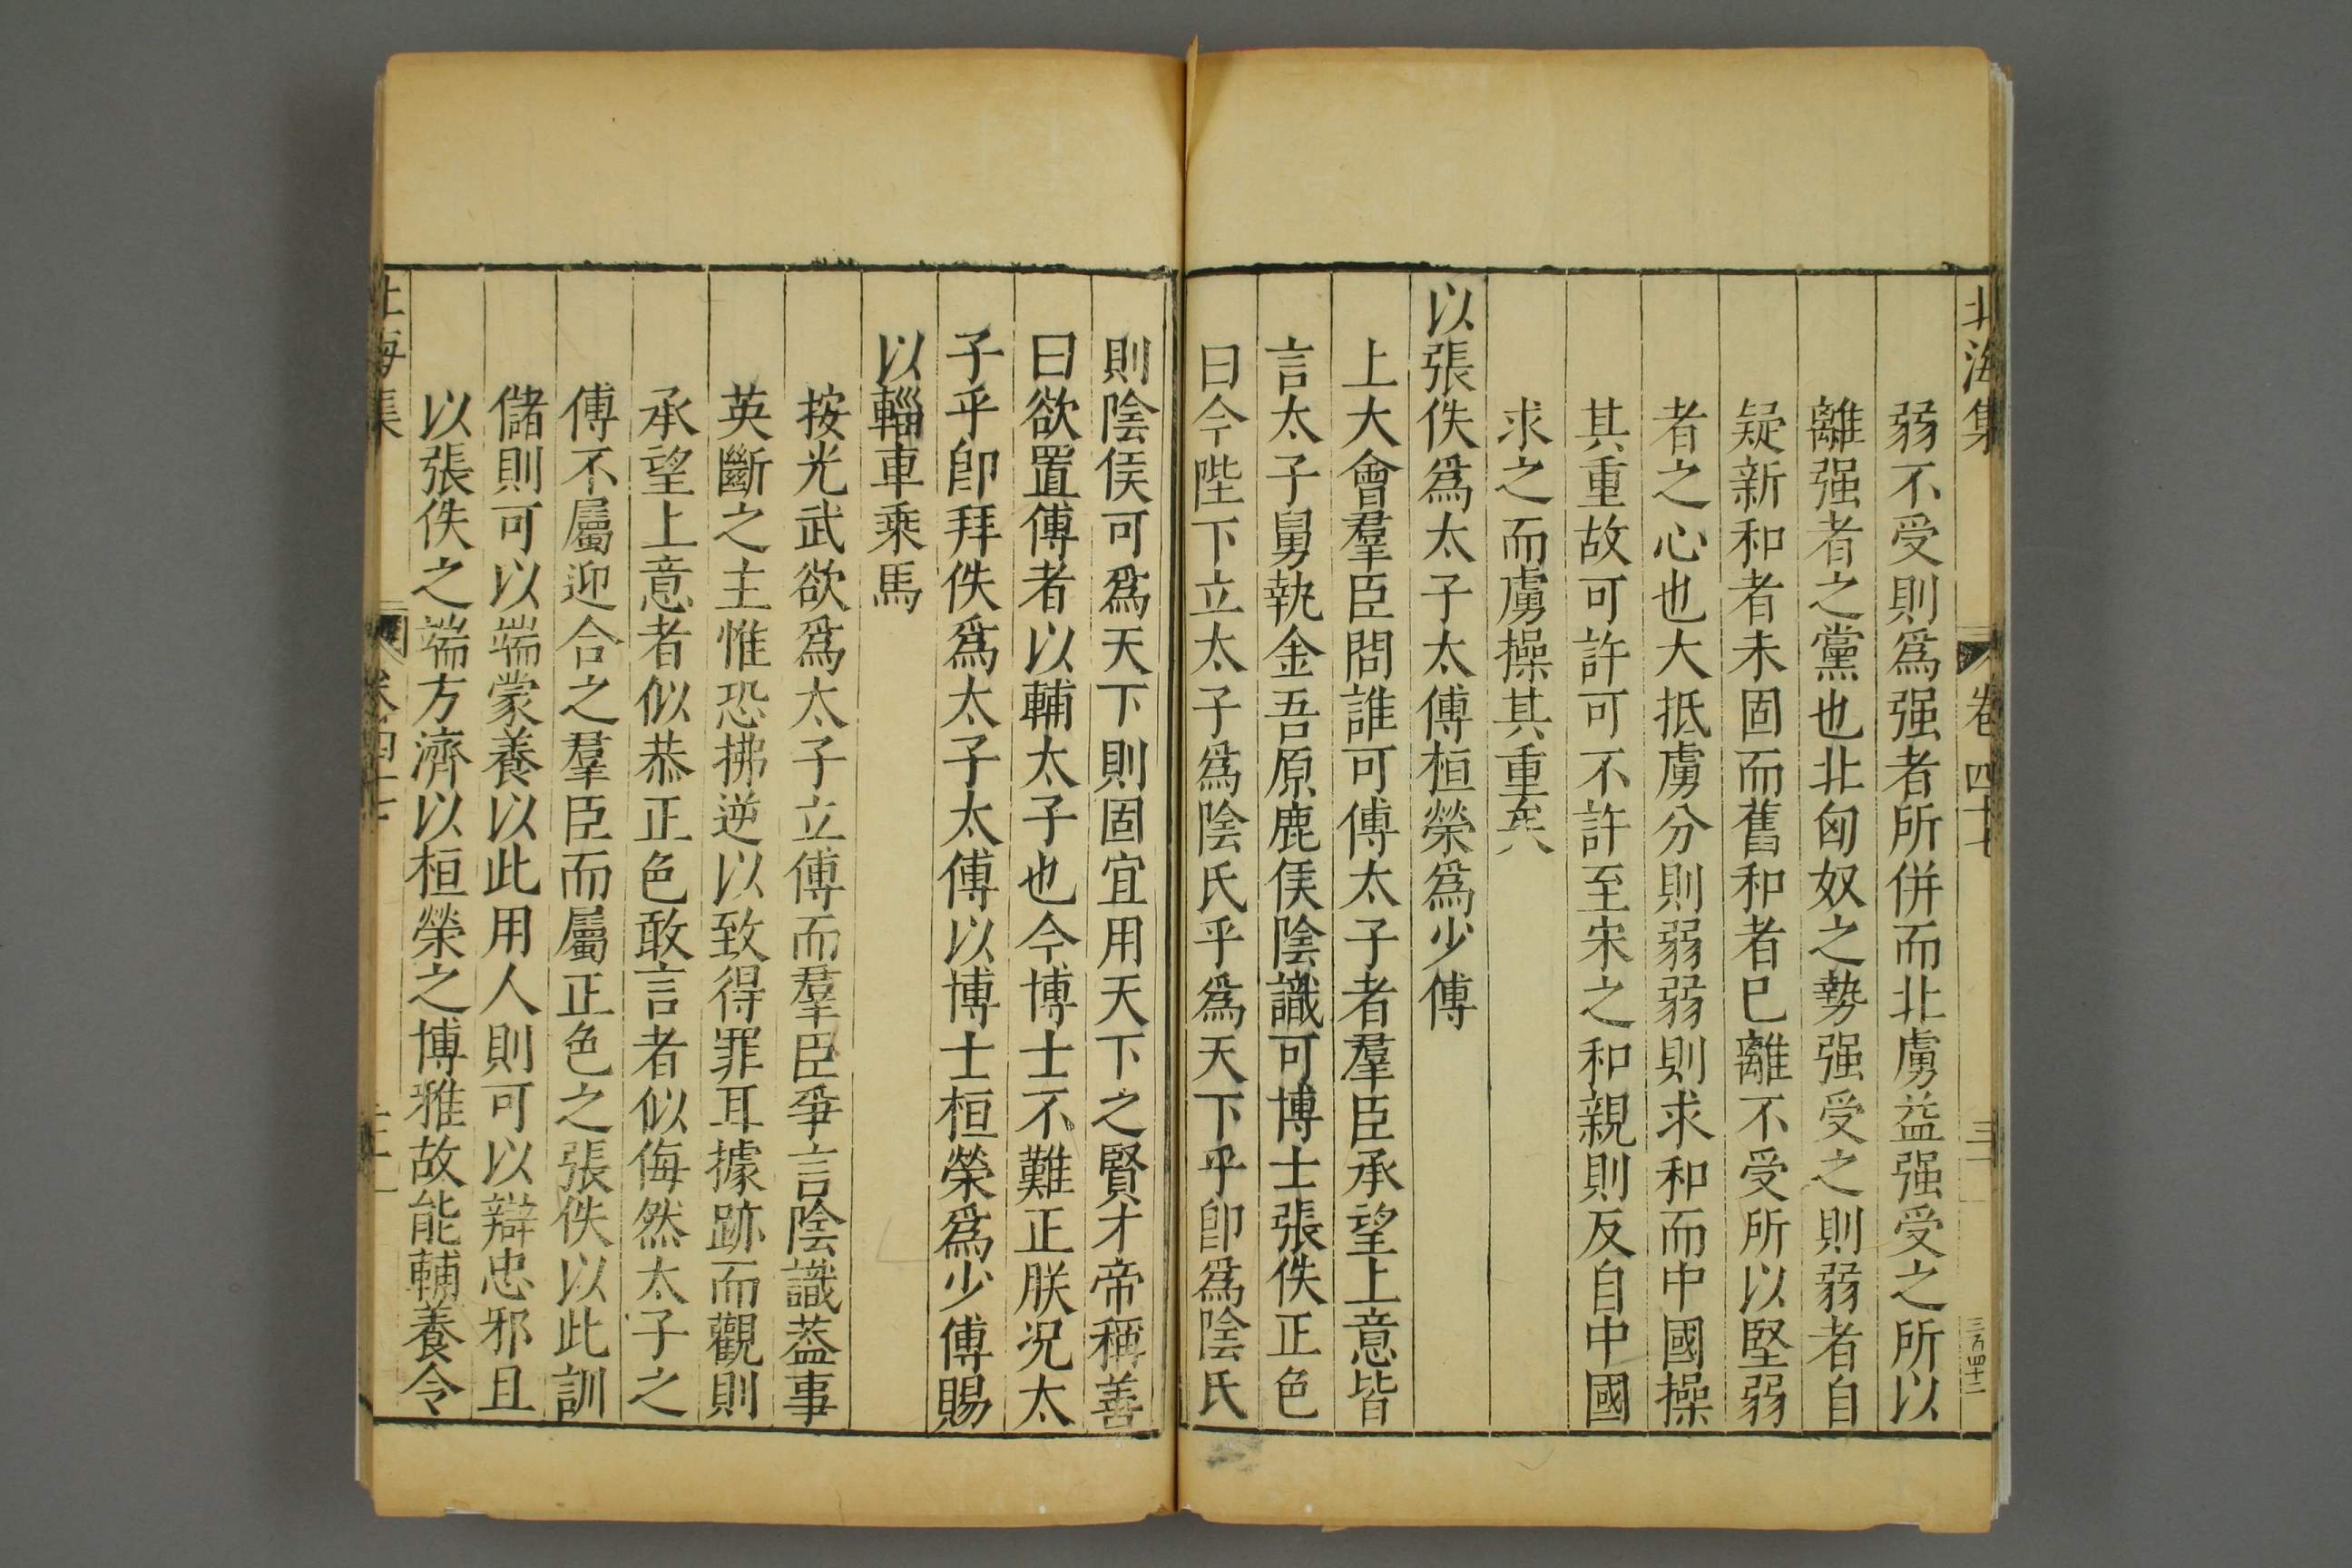 北海集 卷四十七 三
三百四十二
弱不受則爲强者所併而北虜益强受之所以
離强者之黨也北匈奴之勢强受之則弱者自
疑新和者未固而舊和者巳離不受所以堅弱
者之心也大抵虜分則弱弱則求和而中國操
其重故可許可不許至宋之和親則反自中國
求之而虜操其重矣
以張佚爲太子太傅桓榮爲少傅
上大會羣臣問誰可傅太子者羣臣承望上意皆
言太子舅執金吾原鹿侯陰識可博士張佚正色
曰今陛下立太子爲陰氏乎爲天下乎卽爲陰氏
則陰侯可爲天下則固宜用天下之賢才帝稱善
曰欲置傅者以輔太子也今博士不難正朕况太
子乎卽拜佚爲太子太傅以博士桓榮爲少傅賜
以輜車乘馬
按光武欲爲太子立傅而羣臣爭言陰識葢事
英斷之主惟恐拂逆以致得罪耳據跡而觀則
承望上意者似恭正色敢言者似侮然太子之
傅不屬迎合之羣臣而屬正色之張佚以此訓
儲則可以端蒙養以此用人則可以辯忠邪且
以張佚之端方濟以桓榮之博雅故能輔養令
北海集 卷四十七